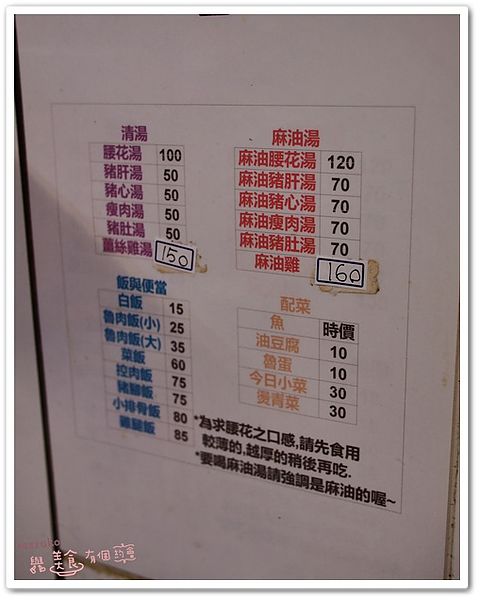 清湯
腰花湯 100
豬肝湯 50
豬心湯 50
瘦肉湯 50
豬肚湯 50
薑絲雞湯 150
麻油湯
麻油腰花湯 120
麻油豬肝湯 70
麻油豬心湯 70
麻油瘦肉湯 70
麻油豬肚湯 70
麻油雞 160
飯與便當
白飯 15
魯肉飯(小) 25
魯肉飯(大) 35
菜飯 60
控肉飯 75
豬腳飯 75
小排骨飯 80
雞腿飯 85
配菜
魚 時價
油豆腐 10
魯蛋 10
今日小菜 30
燙青菜 30
*為求腰花之口感,請先食用
較薄的,越厚的稍後再吃.
*要喝麻油湯請強調是麻油的喔~
與美食有個約會